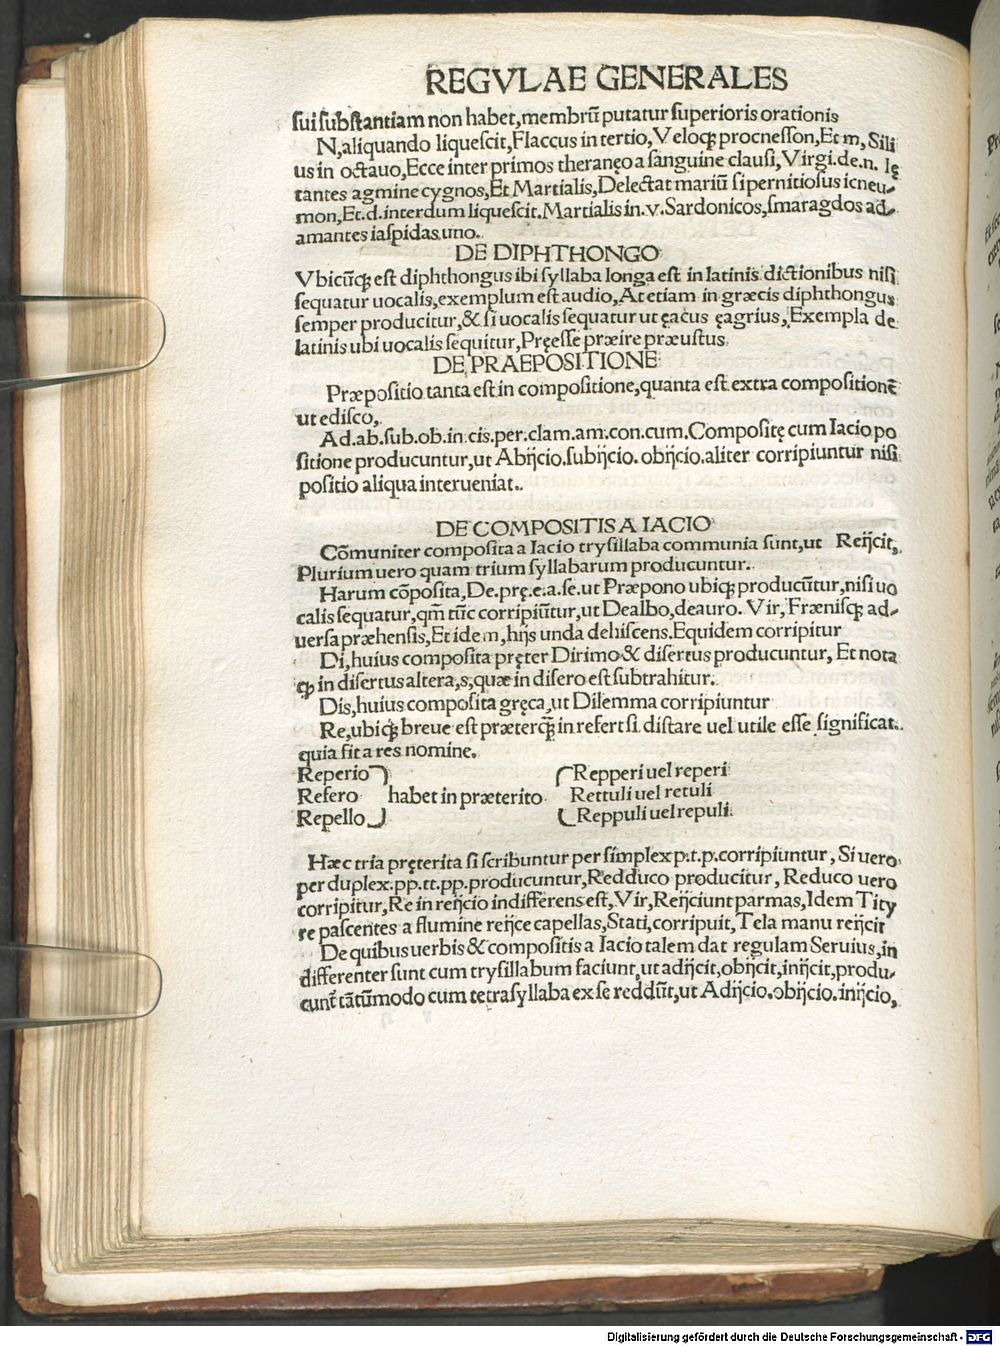 REGVLAE GENERALES
sui substantiam non habet, membrũ putatur superioris orationis
N, aliquando liquescit, Flaccus in tertio, Veloqꝫ procnesson, Et m, Sili
us in octauo, Ecce inter primos theranęo a sanguine clausi, Virgi.de.n. lę
tantes agmine cygnos, Et Martialis, Delectat mariũ si pernitiosus icneu-
mon, Et.d.interdum liquescit. Martialis in.v. Sardonicos, smaragdos ad-
amantes iaspidas uno.
DE DIPHTHONGO
Vbicũqꝫ est diphthongus ibi syllaba longa est in latinis dictionibus nisi
sequatur uocalis, exemplum est audio, At etiam in græcis diphthongus
semper producitur, & si uocalis sequatur ut ęacus ęagrius, Exempla de
latinis ubi uocalis sequitur, Pręesse præire præustus.
DE PRAEPOSITIONE
Præpositio tanta est in compositione, quanta est extra compositionẽ
ut edisco,
Ad.ab.sub.ob.in.cis.per.clam.am.con.cum. Compositę cum Iacio po
sitione producuntur, ut Abijcio.subijcio.obijcio.aliter corripiuntur nisi
positio aliqua interueniat.
DE COMPOSITIS A IACIO
Cõmuniter composita a Iacio trysillaba communia sunt, ut Reijcit,
Plurium uero quam trium syllabarum producuntur.
Harum cõposita, De.prę.e.a.se.ut Præpono ubiqꝫ producũtur, nisi uo
calis sequatur, qm̃ tũc corripiũtur, ut Dealbo, deauro. Vir, Frænisqꝫ ad-
uersa præhensis, Et idem, hijs unda dehiscens. Equidem corripitur
Di, huius composita pręter Dirimo & disertus producuntur, Et nota
ꝙ in disertus altera, s, quæ in disero est subtrahitur.
Dis, huius composita gręca, ut Dilemma corripiuntur
Re, ubiqꝫ breue est præterqꝫ̃ in refert si distare uel utile esse significat.
quia fit a res nomine.
Reperio Repperi uel reperi
Refero habet in præterito Rettuli uel retuli
Repello Reppuli uel repuli.
Hæc tria pręterita si scribuntur per simplex p.t.p.corripiuntur, Si uero
per duplex.pp.tt.pp.producuntur, Redduco producitur, Reduco uero
corripitur, Re in reijcio indifferens est, Vir, Reijciunt parmas, Idem Tity
re pascentes a flumine reijce capellas, Stati, corripuit, Tela manu reijcit
De quibus uerbis & compositis a Iacio talem dat regulam Seruius, in
differenter sunt cum trysillabum faciunt, ut adijcit, obijcit, inijcit, produ-
cunt̃ tãtũmodo cum tetrasyllaba ex se reddũt, ut Adijcio.obijcio.inijcio,
Digitalisierung gefördert durch die Deutsche Forschungsgemeinschaft - DFG